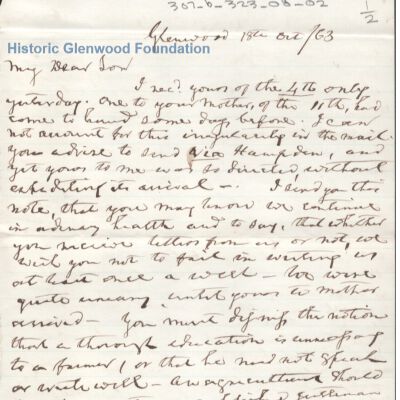 307-b-323-06-02
1/2
Historic Glenwood Foundation
Glenwood 18th Oct /63
My Dear Son
I recd. yours of the 4th only
yesterday. One to your Mother, of the 11th, had
come to hand some days before. I can
not account for this irregularity in the mail.
you advise to send via Hampden, and
yet yours to me was so directed, without
expediting its arrival — I send you this
note, that you may know we continue
in ordinary health and to say, that whether
you receive letters from us or not, we
wish you not to fail in writing us
at least once a week — We were
quite uneasy until yours to Mother
arrived — You must dismiss the notion
that a thorough education is unnecessary
to a farmer, or that he need not speak
or write well — An agriculturist should
gentleman